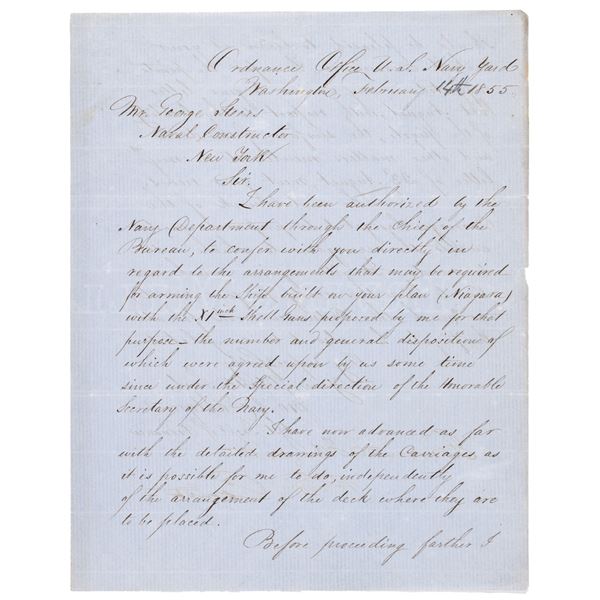 Ordnance Office U.S. Navy Yard
Washington, February 14th 1855.
Mr. George Steers
Naval Constructor
New York
Sir.
I have been authorized by the
Navy Department through the Chief of the
Bureau, to confer with you directly in
regard to the arrangements that may be required
for arming the Ship built on your plan (Niagara)
with the XI inch Shell Guns proposed by me for that
purpose — the number and general disposition of
which were agreed upon by us some time
since under the Special direction of the Honorable
Secretary of the Navy.
I have now advanced as far
with the detailed drawings of the Carriages, as
it is possible for me to do, independently
of the arrangement of the deck where they are
to be placed.
Before proceeding farther I